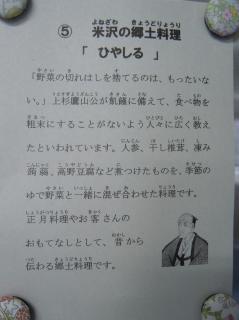 ⑤ 米沢の郷土料理
「 ひやしる 」
「野菜の切れはしを捨てるのは、もったいな
い。」上杉鷹山公が飢饉に備えて、食べ物を
粗末にすることがないよう人々に広く教え
たといわれています。人参、干し椎茸、凍み
蒟蒻、高野豆腐など煮つけたものを、季節の
ゆで野菜と一緒に混ぜ合わせた料理です。
正月料理やお客さんの
おもてなしとして、昔から
伝わる郷土料理です。